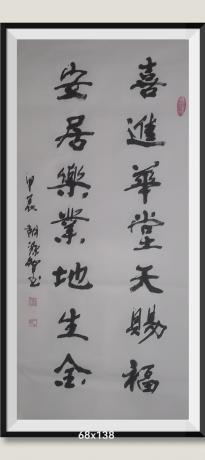 喜進華堂天賜福
安居樂業地生金
甲辰
68x138